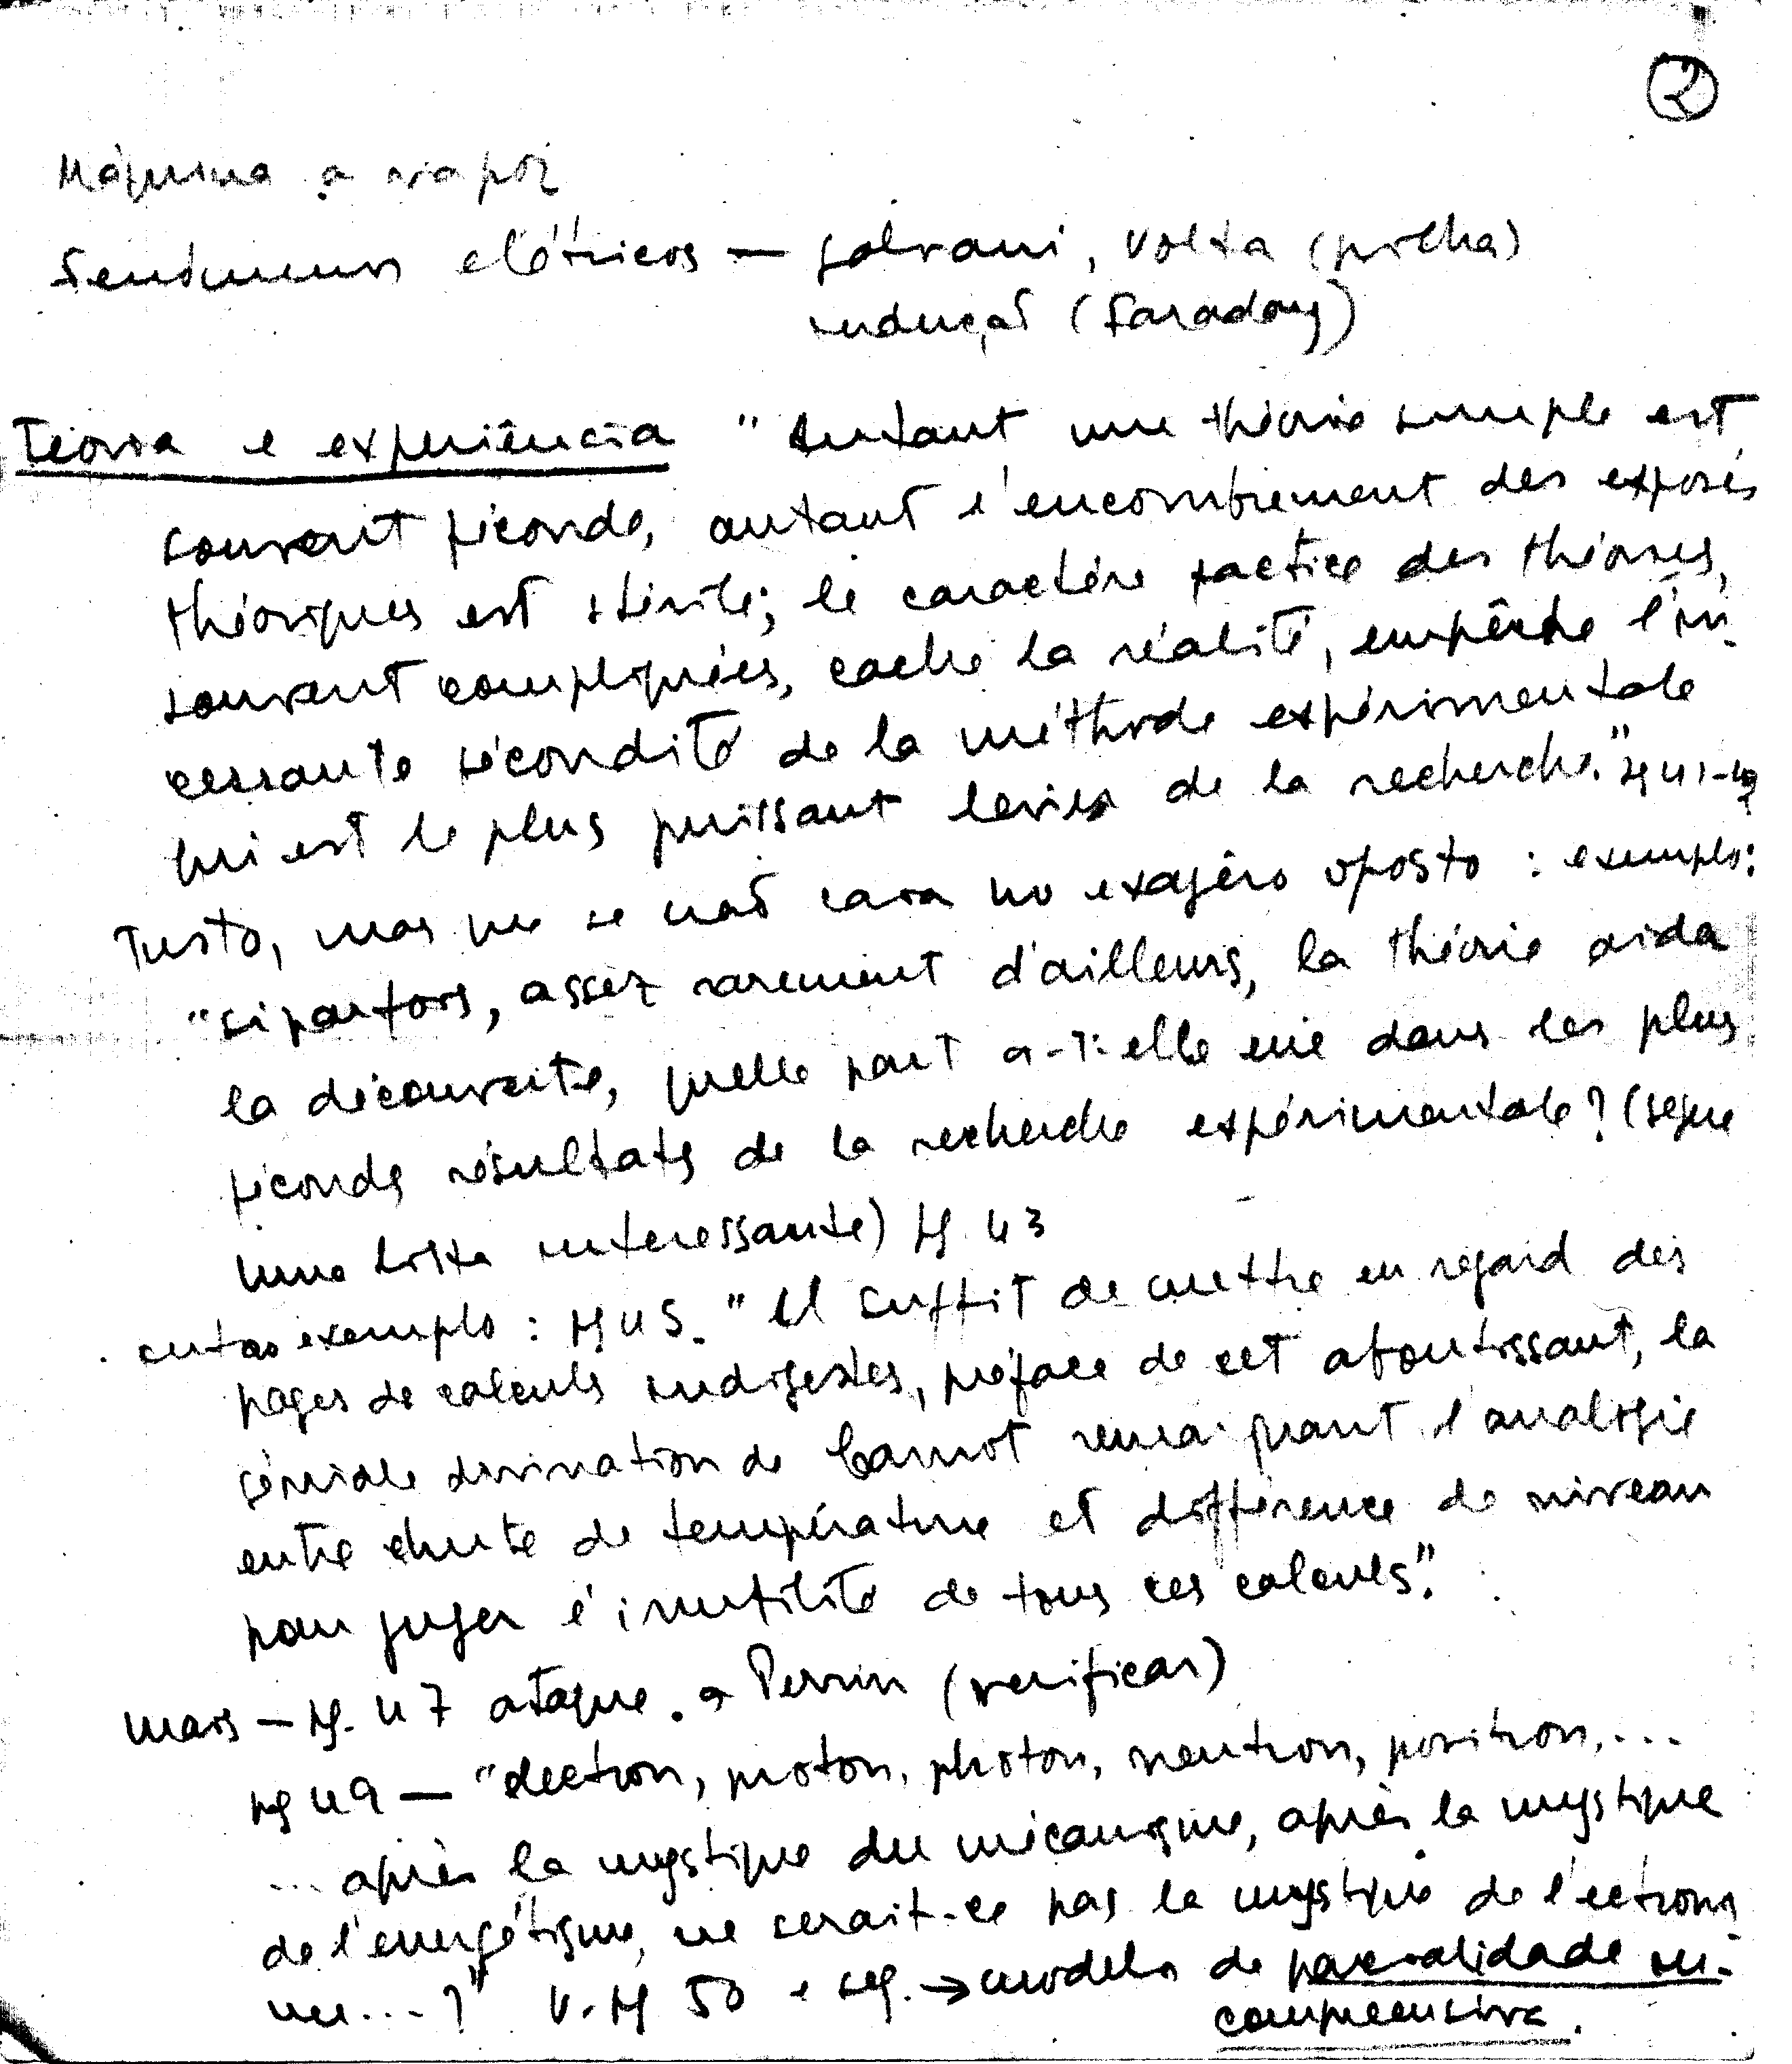 2
Máquina a vapor
Fenômenos elétricos — Galvani, Volta (pilha)
indução (Faraday)
Teoria e experiência "Autant une théorie simple est
souvent féconde, autant l'encombrement des exposés
théoriques est stérile; le caractère factice des théories,
souvent compliquées, cache la réalité, empêche l'in-
cessante fécondité de la méthode expérimentale
qui est le plus puissant levier de la recherche." pg 41-42
Justo, mas que se não caia no exagêro oposto: exemplo:
"si parfois, assez rarement d'ailleurs, la théorie aida
la découverte, quelle part a-t-elle eue dans les plus
féconds résultats de la recherche expérimentale? (segue
uma lista interessante) pg 43
outro exemplo: pg 45. "Il suffit de mettre en regard des
pages de calculs indigestes, préface de cet aboutissant, la
géniale divination de Carnot remarquant l'analogie
entre chute de température et différence de niveau
pour juger l'inutilité de tous ces calculs".
mais — pg. 47 ataque a Perrin (verificar)
pg 49 — "electron, proton, photon, neutron, positron, ...
... après la mystique du mécanisme, après la mystique
de l'énergétisme, ne serait-ce pas la mystique de l'ectronis
me...?" V. pg 50 e seg. → modelo de parcialidade in-
compreensiva.